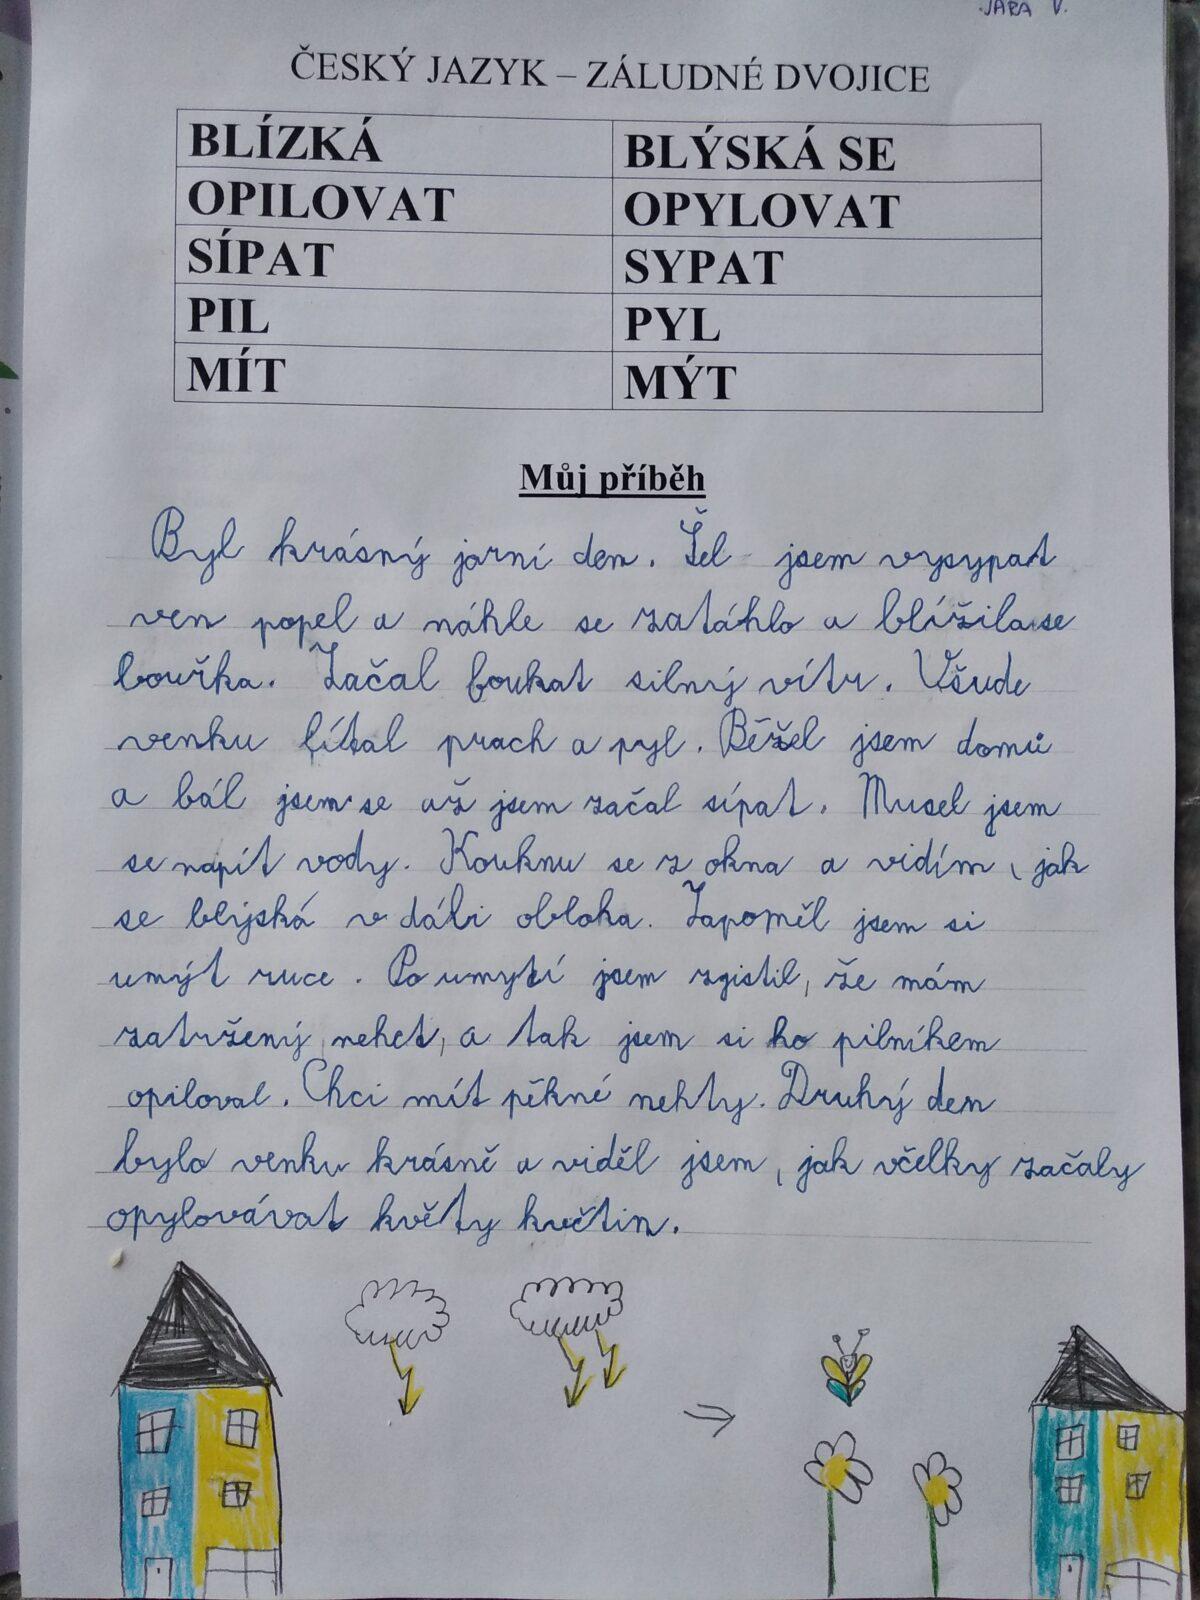 JÁRA V.
ČESKÝ JAZYK – ZÁLUDNÉ DVOJICE
BLÍZKÁ BLÝSKÁ SE
OPILOVAT OPYLOVAT
SÍPAT SYPAT
PIL PYL
MÍT MÝT
Můj příběh
Byl krásný jarní den. Šel jsem vysypat
ven popel a náhle se zatáhlo a blížila se
bouřka. Začal foukat silný vítr. Všude
venku lítal prach a pyl. Běžel jsem domů
a bál jsem se až jsem začal sípat. Musel jsem
se napít vody. Kouknu se z okna a vidím, jak
se blýská v dáli obloha. Zapoměl jsem si
umýt ruce. Po umytí jsem zjistil, že mám
zatržený nehet, a tak jsem si ho pilníkem
opiloval. Chci mít pěkné nehty. Druhý den
bylo venku krásně a viděl jsem, jak včelky začaly
opylovávat květy květin.